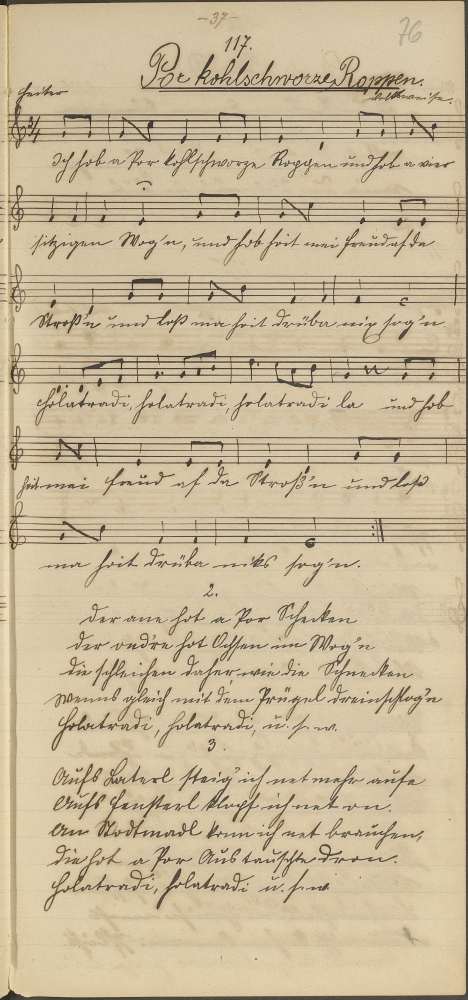 -37-
76
117.
Por kohlschworze Roppen.
Heiter
Volksweise.
3/4
Ich hob a Por kohlschworze Roppen und hob a vier
sitzigen Wog'n, und hob heit mei Freud af da
Stroß'n und loß ma heit drüba nix sog'n
holatradi, holatradi, holatradi la und hob
heit mei Freud af da Stroß'n und loß
ma heit drüba niks sog'n.
2.
Der ane hot a Por Schecken
der ondre hot Ochsen im Wog'n
die schleichen daher, wie die Schnecken
wenns gleich mit dem Prügel dreinschlog'n
Holatradi, holatradi, u. s. w.
3.
Aufs Laterl steig' ich net mehr aufe
Aufs Fensterl klopf ich net on.
An Stodtmadl konn ich net brauchen,
die hot a Por Austauschte dron.
Holatradi, holatradi u. s. w.